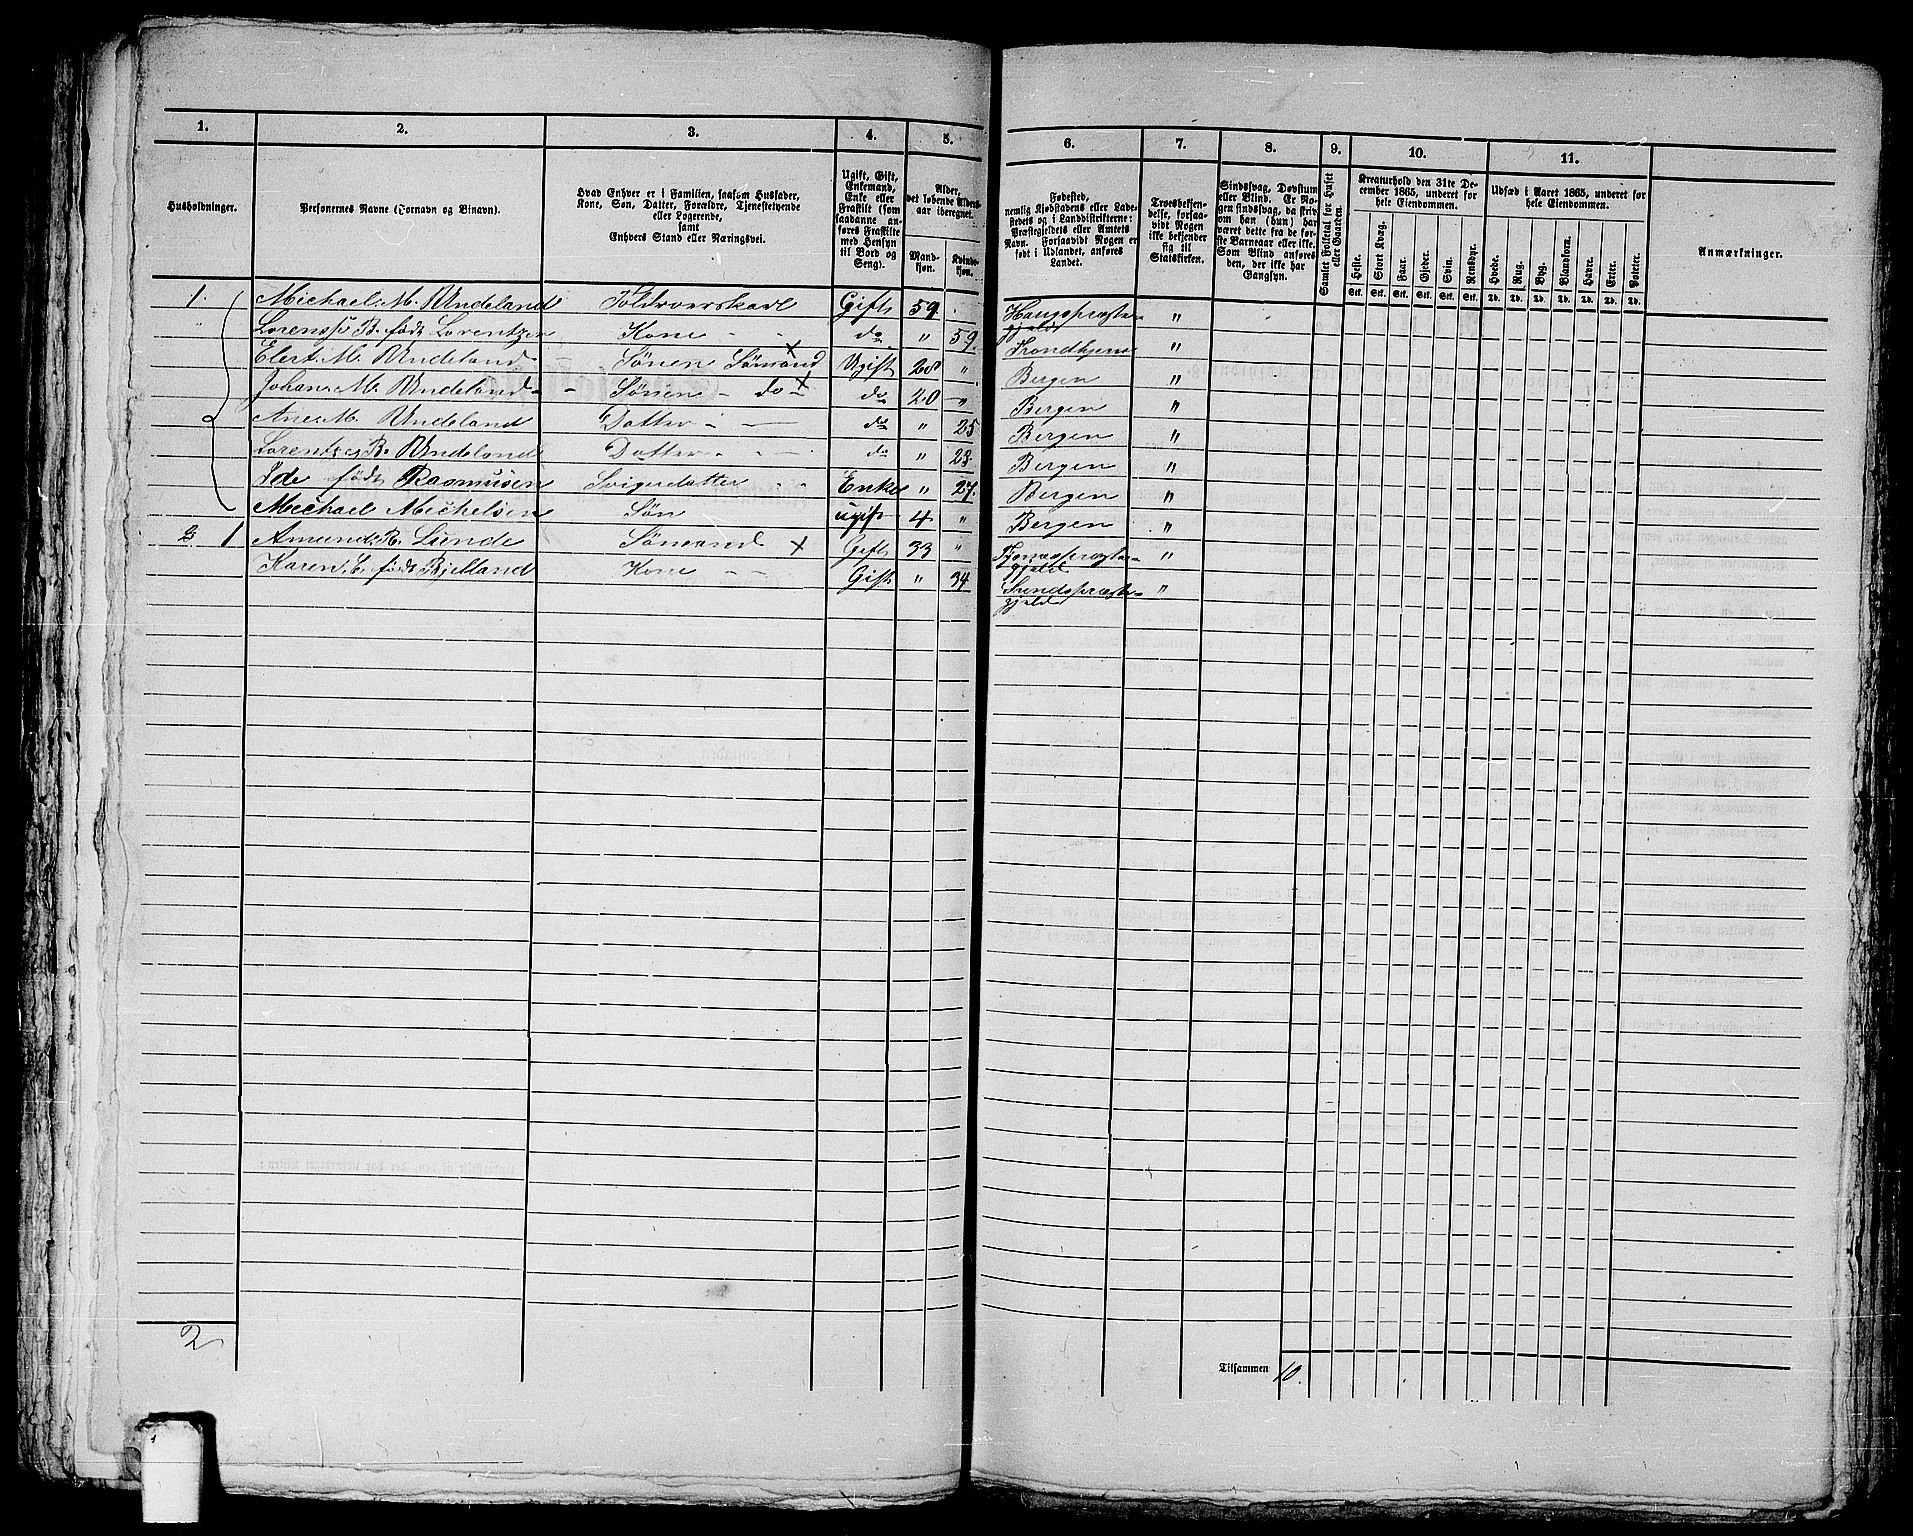 1. 2. 3. 4. 5. 6. 7. 8. 9. 10. 11.
Husholdninger.
Personernes Navne (Fornavn og Binavn).
Hvad Enhver er i Familien, saasom Husfader,
Kone, Søn, Datter, Forældre, Tjenestetyende
eller Logerende,
samt
Enhvers Stand eller Næringsvei.
Ugift, Gift,
Enkemand,
Enke eller
Fraskilt (som
saadanne an-
føres Fraskilte
med Hensyn
til Bord og
Seng).
Alder,
det løbende Alders-
aar iberegnet.
Mand-
kjøn.
Kvinde-
kjøn.
Fødested,
nemlig Kjøbstadens eller Lade-
stedets og i Landdistrikterne:
Præstegjeldets eller Amtets
Navn. Forsaavidt Nogen er
født i Udlandet, anføres
Landet.
Troesbekjen-
delse, forsaa-
vidt Nogen
ikke bekjender
sig til
Statskirken.
Sindssvag, Døvstum
eller Blind. Er No-
gen sindssvag, da skriv
om han (hun) har
været dette fra de før-
ste Barneaar eller ikke.
Som Blind anføres
den, der ikke har
Gangsyn.
Samlet Folketal for Huset
eller Gaarden.
Kreaturhold den 31te De-
cember 1865, underet for
hele Eiendommen.
Heste. Stort Kvæg. Faar. Gjeder. Svin. Rensdyr.
Stk. Stk. Stk. Stk. Stk. Stk.
Udsæd i Aaret 1865, underet for
hele Eiendommen.
Hvede. Rug. Byg. Blandkorn. Havre. Erter. Poteter.
Td. Td. Td. Td. Td. Td. Td.
Anmærkninger.
1. Michael M. Undeland Toldroerskarl Gift 59. Hougspræste-gjeld "
B. født Lorentzen Kone - - do " 59. Trondhjem "
Elert M. Undeland Sønen Sømand X Ugift 28 " Bergen "
Johan M. Undeland - - Sønen - do - X do 20 " Bergen "
Ane M. Undeland Datter - - do " 25 Bergen "
B. Undeland Datter - - do " 23. Bergen "
Ide født Rasmusen Svigerdatter - - Enke " 27. Bergen "
Michael Michelsen Søn ugift 4 " Bergen "
2 1 Amund R. Lunde Sømand X Gift 33 " "
Karen E. født Bjelland Kone - - Gift " 34 Sundspræste-gjeld "
2
Tilsammen 10.